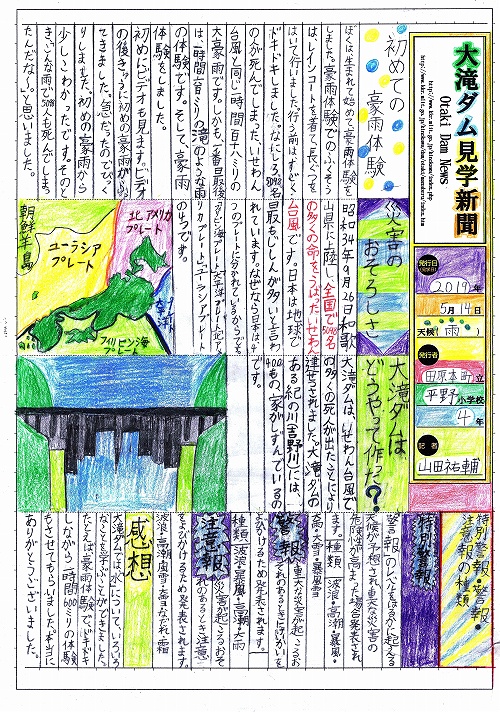 大滝ダム見学新聞
Otaki Dam News
発行日
2019年
5月14日
天候（雨）
発行者
田原本町立
平野小学校
4年
記者
山田祐輔
初めての
豪雨体験
ぼくは、生まれて始めて豪雨体験を
しました。豪雨体験でのふくそう
は、レインコートを着て、長ぐつを
はいて行いました。行う前は、すごく
ドキドキしました。なにしろ5098名
のが死んでしまったいせわん
台風と同じ時間百十八ミリの
大豪雨です。しかも、一番最後
は、一時間六百ミリの滝のような雨
の体験です。そして、豪雨
体験をしました。
初めにビデオも見ます。ビデオ
の後きゅうに初めの豪雨がふっ
てきました。急だったのでびっく
りしました。初めの豪雨から
少しこわかったです。そのと
き、こんな雨で5098人も死んでしまっ
たんだな〜。と思いました。
災害の
おそろしさ
昭和34年9月26日和歌
山県に上陸し、全国で5098名
の多くの命をうばった、いせわん
台風です。日本は地球で
最もじしんが多いと言わ
れています。なぜなら日本は4
つのプレートに分かれているからです。
フィリピン海プレート太平洋プレート北アメ
リカプレートユーラシアプレート
の4つです。
北アメリカ
プレート
ユーラシア
プレート
太平洋
フィリピン海
プレート
朝鮮半島
大滝ダムは
どうやって作った?
大滝ダムは、いせわん台風で
の多くの死人が出たことにより
建せつされました。大滝ダムの
ある紀の川(吉野川)には、
400もの、家がしずんでいるの
です。
特別警報・警報・
注意報の種類
特別警報
警報のレベルをはるかに超える
大候が予想され、重大な災害の
危険性が高まった場合発表され
ます。種類 波浪・高潮・暴風・
大雨・大雪・暴風雪
警報
重大な災害が起こるお
それのあるときにけいかいを
よびかけるため発表されます。
種類 波浪・暴風・高潮・大雨
注意報
災害が起こるおそ
れのあるとき、注意
をよびかけるため発表されます。
波浪・高潮・風雪・濃霧・なだれ・霜
感想
大滝ダムでは、水について、いろいろ
なことを学ぶことができました。
たとえば、豪雨体験で、ドキドキ
しながら一時間600ミリの体験
もさせてもらいました。本当に
ありがとうございました。